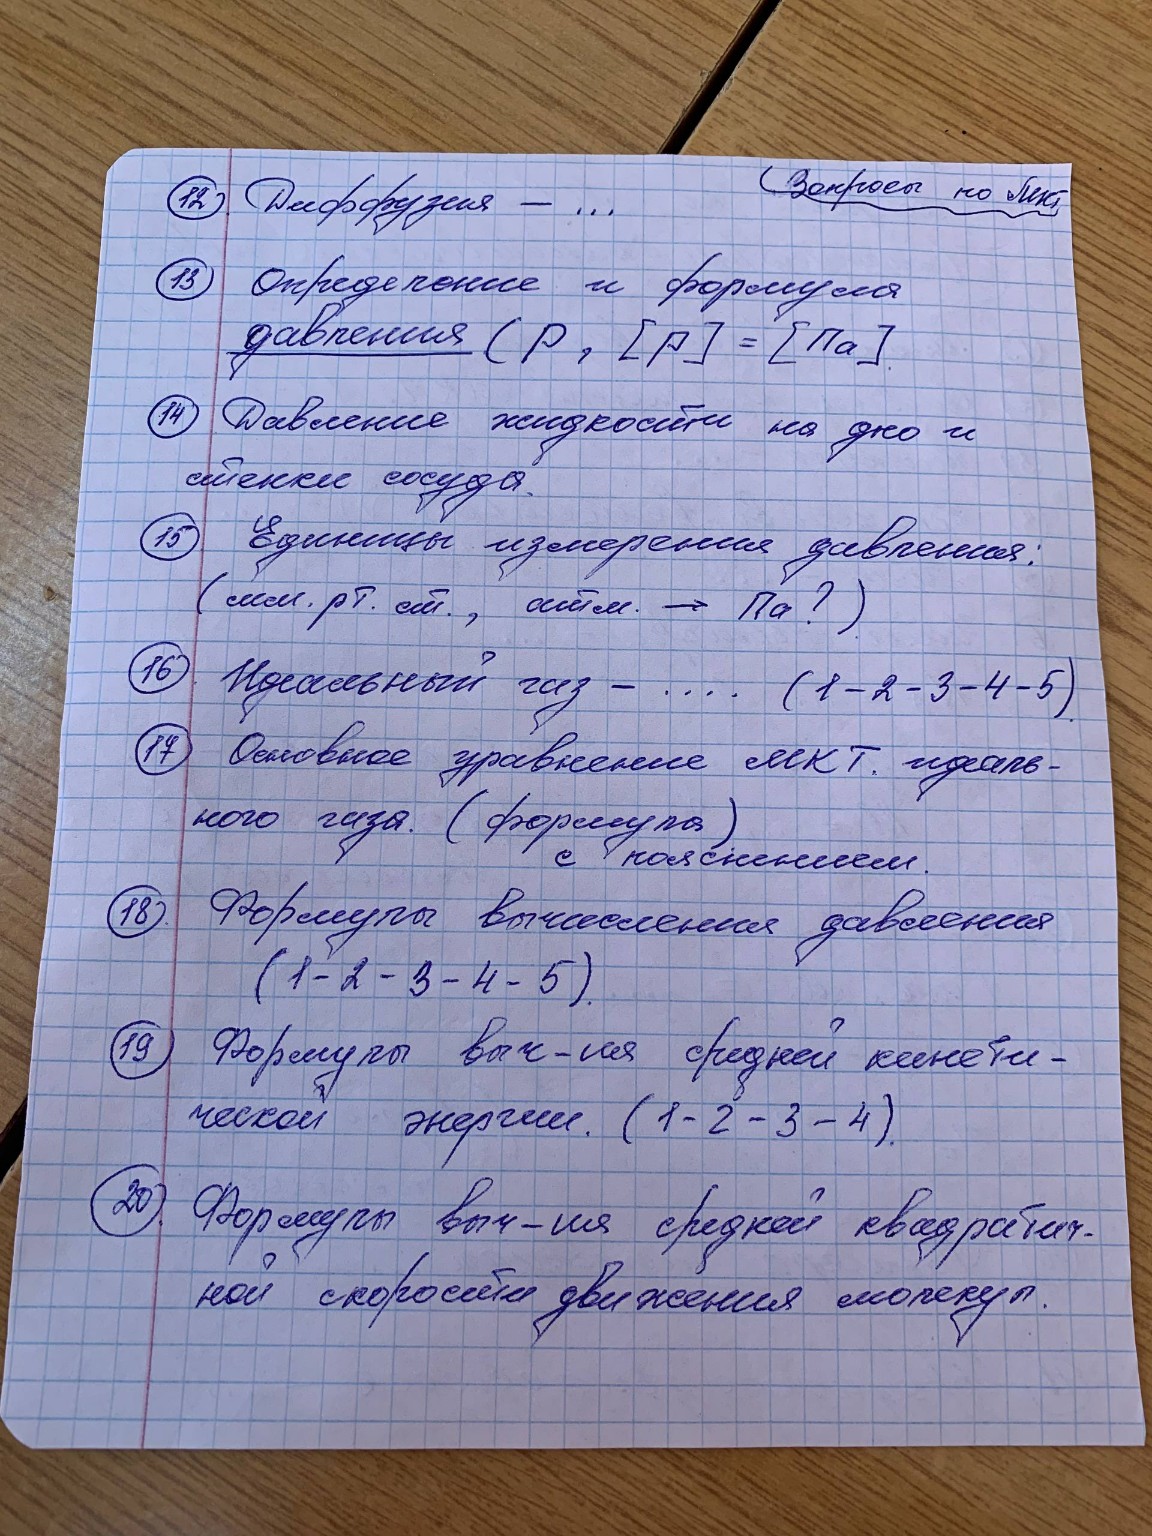 (Вопросы по МКТ
12 Диффузия – ...
13 Определение и формула
давления (p, [p] = [Па].
14 Давление жидкости на дно и
стенки сосуда.
15 Единицы измерения давления:
(мм. рт. ст., атм. → Па?)
16 Идеальный газ – .... (1-2-3-4-5).
17 Основное уравнение МКТ. идеаль-
ного газа. (формула)
с пояснением.
18. Формулы вычисления давления
(1-2-3-4-5).
19 Формулы выч-ия средней кинети-
ческой энергии. (1-2-3-4).
20. Формулы выч-ия средней квадратич-
ной скорости движения молекул.